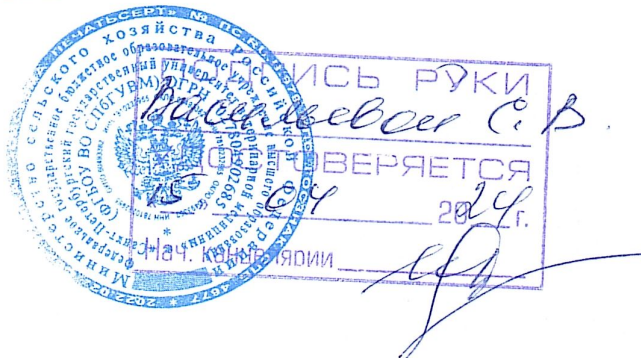 ПОДПИСЬ РУКИ
Васильевой С. В.
УДОСТОВЕРЯЕТСЯ
15 04 2024 г.
Нач. канцелярии
Министерство сельского хозяйства Российской Федерации
Федеральное государственное бюджетное образовательное учреждение высшего образования
Санкт-Петербургский государственный университет ветеринарной медицины
(ФГБОУ ВО СПбГУВМ) ОГРН